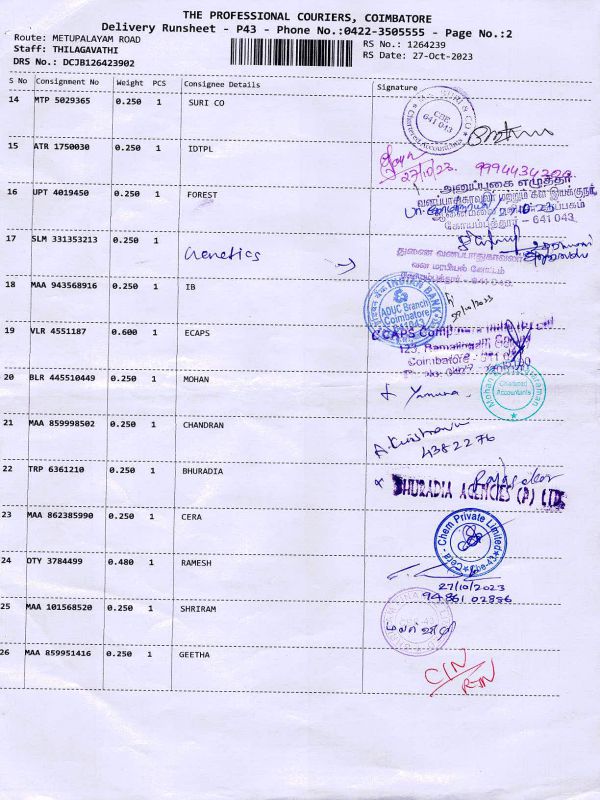 THE PROFESSIONAL COURIERS, COIMBATORE
Delivery Runsheet - P43 - Phone No.:0422-3505555 - Page No.:2
Route: METUPALAYAM ROAD
RS No.: 1264239
Staff: THILAGAVATHI
RS Date: 27-Oct-2023
DRS No.: DCJB126423902
S No Consignment No Weight PCS Consignee Details Signature
14 MTP 5029365 0.250 1 SURI CO
CBE
641 043
Chartered Accountants
15 ATR 1750030 0.250 1 IDTPL
27/10/23
16 UPT 4019450 0.250 1 FOREST
அனுப்புகை எழுத்தர்
கோயம்புத்தூர் - 641 043.
17 SLM 331353213 0.250 1
Genetics
18 MAA 943568916 0.250 1 IB
INDIAN BANK
ADUC Branch
Coimbatore
641043
19 VLR 4551187 0.600 1 ECAPS
123, Ramalingam
Coimbatore - 641
20 BLR 445510449 0.250 1 MOHAN
Chartered
Accountants
21 MAA 859998502 0.250 1 CHANDRAN
4382276
22 TRP 6361210 0.250 1 BHURADIA
BHURADIA AGENCIES (P) LTD
23 MAA 862385990 0.250 1 CERA
Chem Private Limited
24 OTY 3784499 0.480 1 RAMESH
27/10/2023
94861 02856
25 MAA 101568520 0.250 1 SHRIRAM
26 MAA 859951416 0.250 1 GEETHA
CIN
RTN